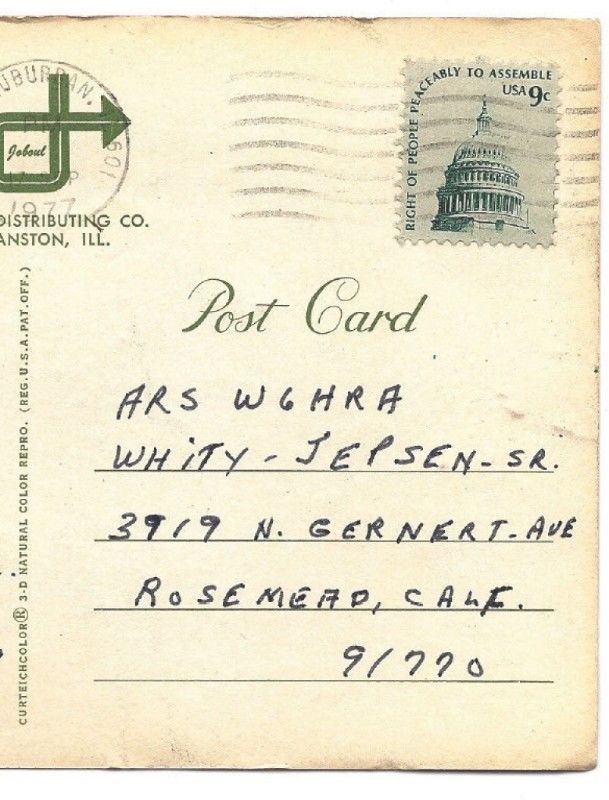 UBURBAN,
601
1977
Joboul
DISTRIBUTING CO.
ANSTON, ILL.
RIGHT OF PEOPLE PEACEABLY TO ASSEMBLE
USA 9c
Post Card
ARS W6HRA
WHiTY - JEPSEN - SR.
3919 N. GERNERT - AVE
ROSEMEAD, CALF.
91770
CURTEICHCOLOR® 3-D NATURAL COLOR REPRO. (REG. U.S.A. PAT. OFF.)